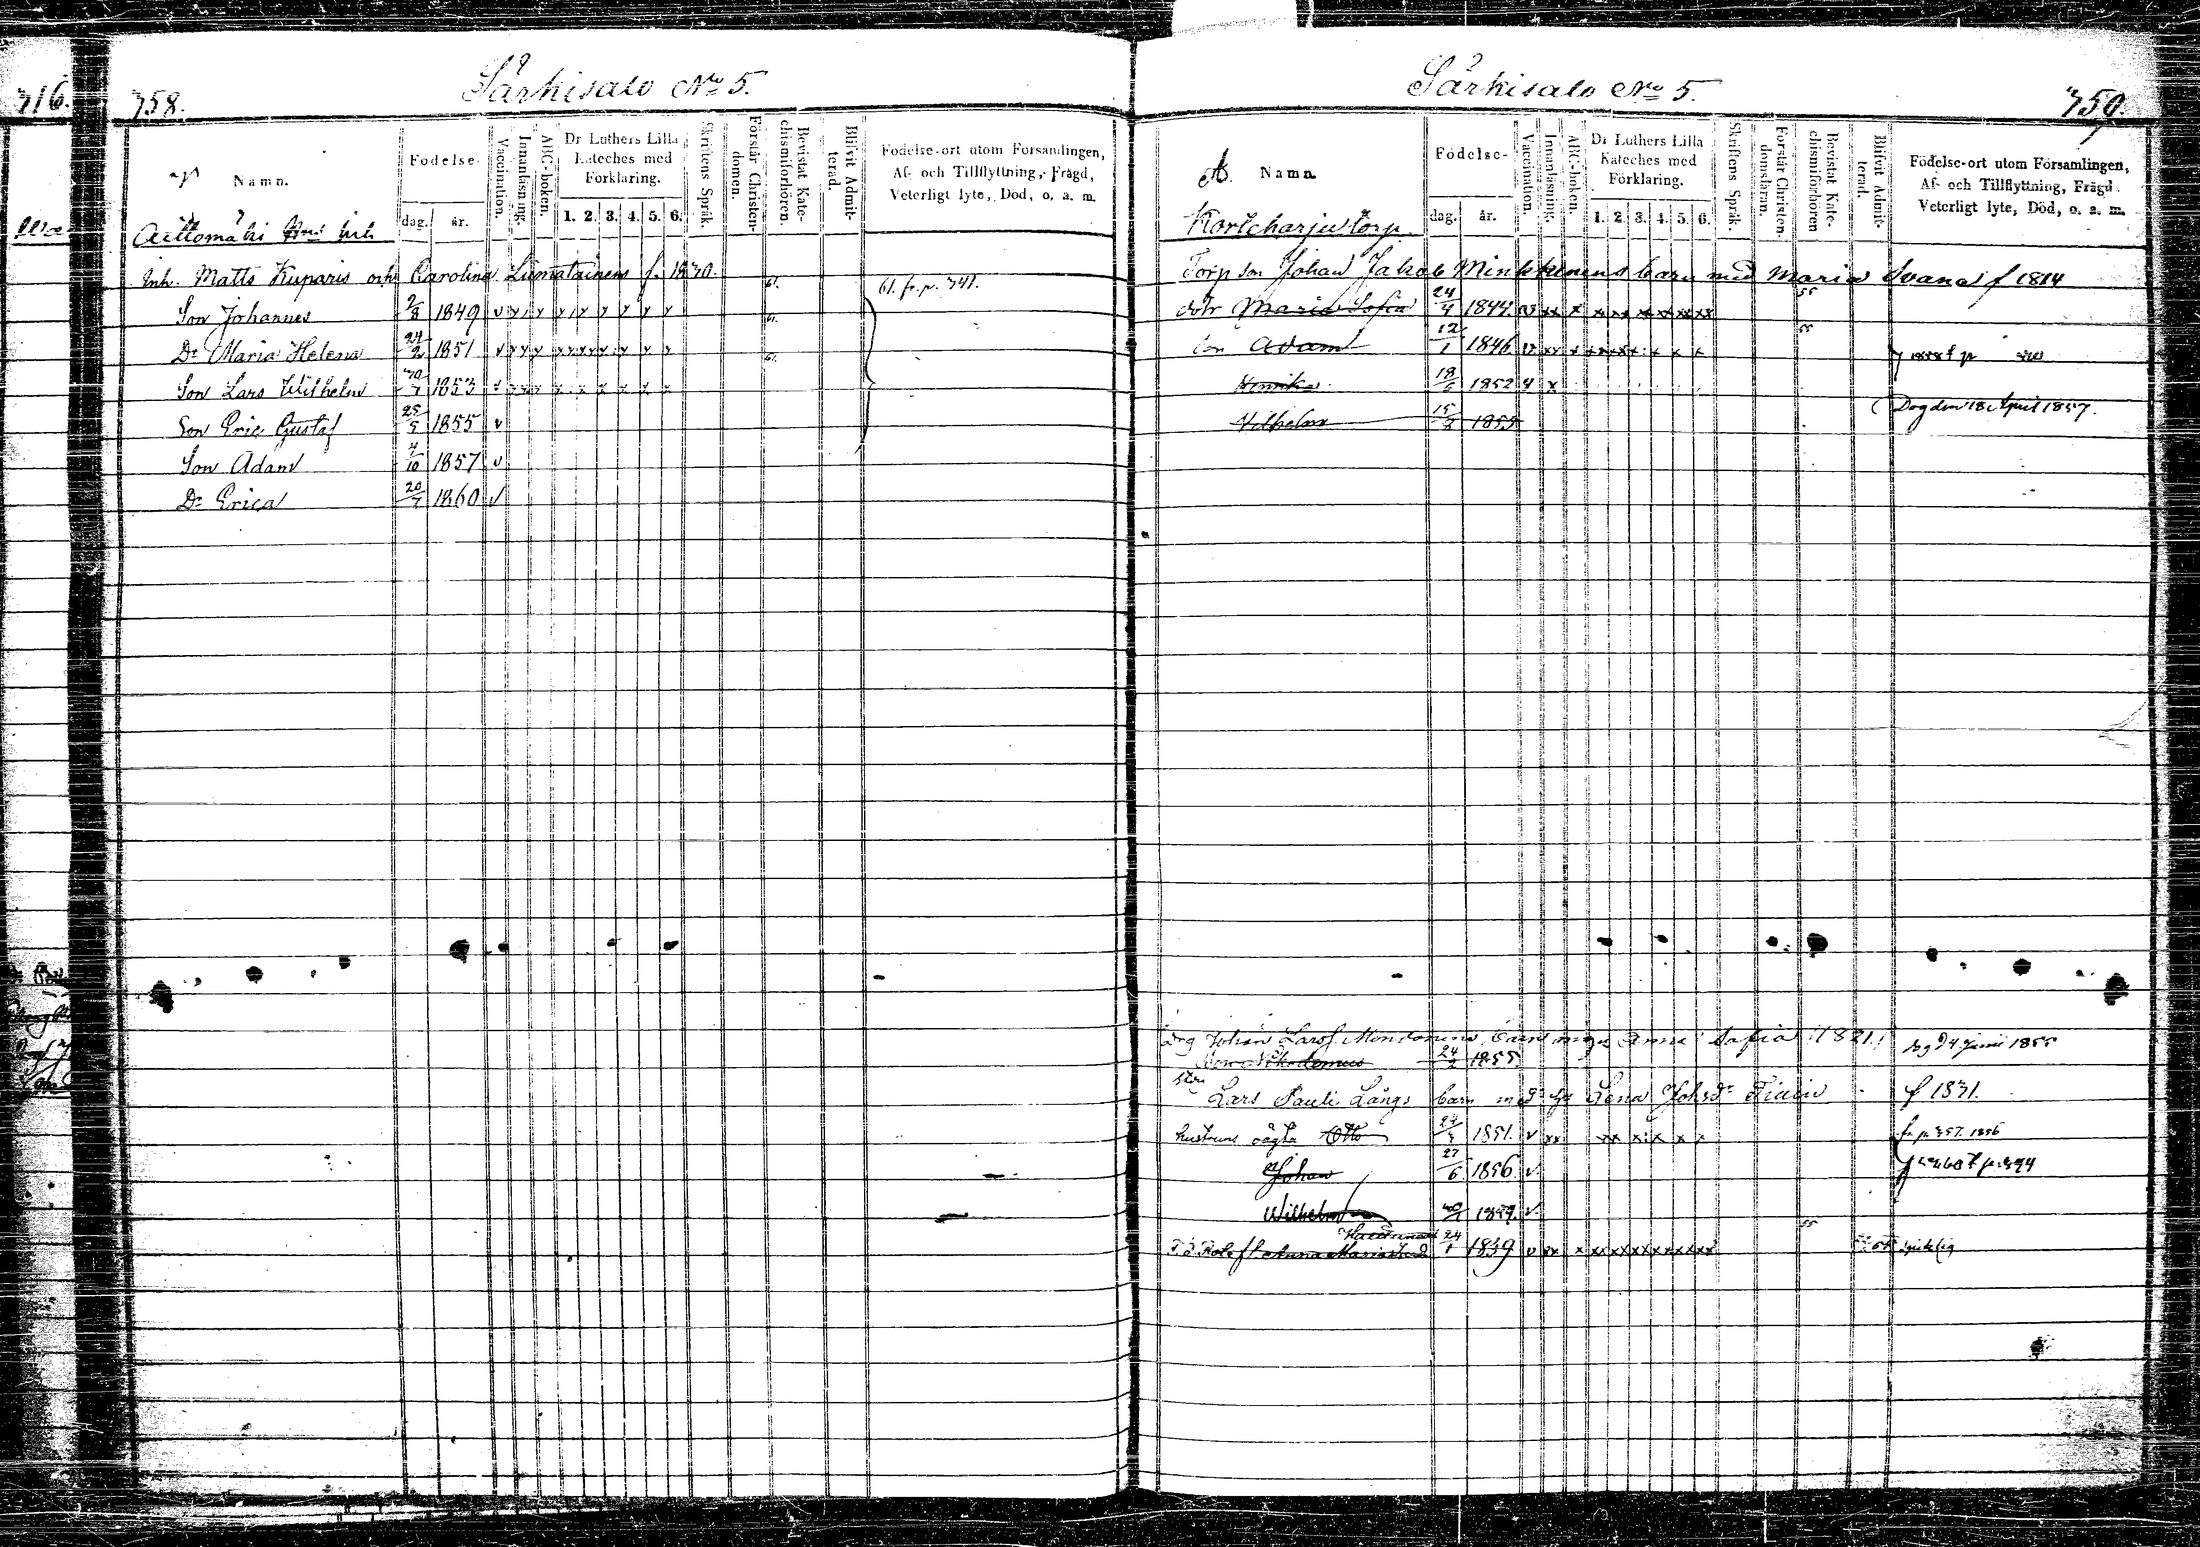 716.
758.
Särkisalo No 5.
Namn.
Födelse-
dag.
år.
Vaccination.
Innanläsning.
ABC-boken.
Dr Luthers Lilla
Kateches med
Förklaring.
1. 2. 3. 4. 5. 6.
Skriftens Språk.
Förstår Christen-
domen.
Bevistat Kate-
chismiförhören.
Blifvit Admit-
terad.
Födelse-ort utom Församlingen,
Af- och Tillflyttning, Frägd,
Veterligt lyte, Död, o. a. m.
Aittomäki
Inh. Matts Kuparis och Carolina Liimatainens f. 1830. 61. 61. fr. p. 741.
Son Johannes 2/8 1849 v 61.
Dr Maria Helena 24/2 1851 v 61.
Son Lars Wilhelm 30/7 1853
Son Eric Gustaf 25/5 1855 v
Son Adam 4/10 1857 v
Dr Erica 20/7 1860 v
Särkisalo No 5.
759.
Namn.
Födelse-
dag.
år.
Vaccination.
Innanläsning.
ABC-boken.
Dr Luthers Lilla
Kateches med
Förklaring.
1. 2. 3. 4. 5. 6.
Skriftens Språk.
Förstår Christen-
domsläran.
Bevistat Kate-
chismiförhören
Blifvit Admit-
terad.
Födelse-ort utom Församlingen,
Af- och Tillflyttning, Frägd.
Veterligt lyte, Död, o. a. m.
Korteharju torp.
Torp son Johan Jakob Minkkinens barn med Maria Ivana f 1814
dotr Maria Sofia 24/4 1844 55
son Adam 12/1 1846 55
Henrika 18/6 1852
Dog den 18 April 1857.
Vilhelm 15/2 1855
Drg Johan Larsf Mondonens barn m hu Anna Sofia 1821.
Son Nikodemus 24/2 1855. dog d 4 Junii 1855
Lars Pauli Långs barn med hu Lena Johsdr Tiain f 1831.
hustruns oägta Otto 1851. v fr p. 757. 1856
Johan 27/6 1856. v
Wilhelm v
Anna Maria 24/1 1839 v 55